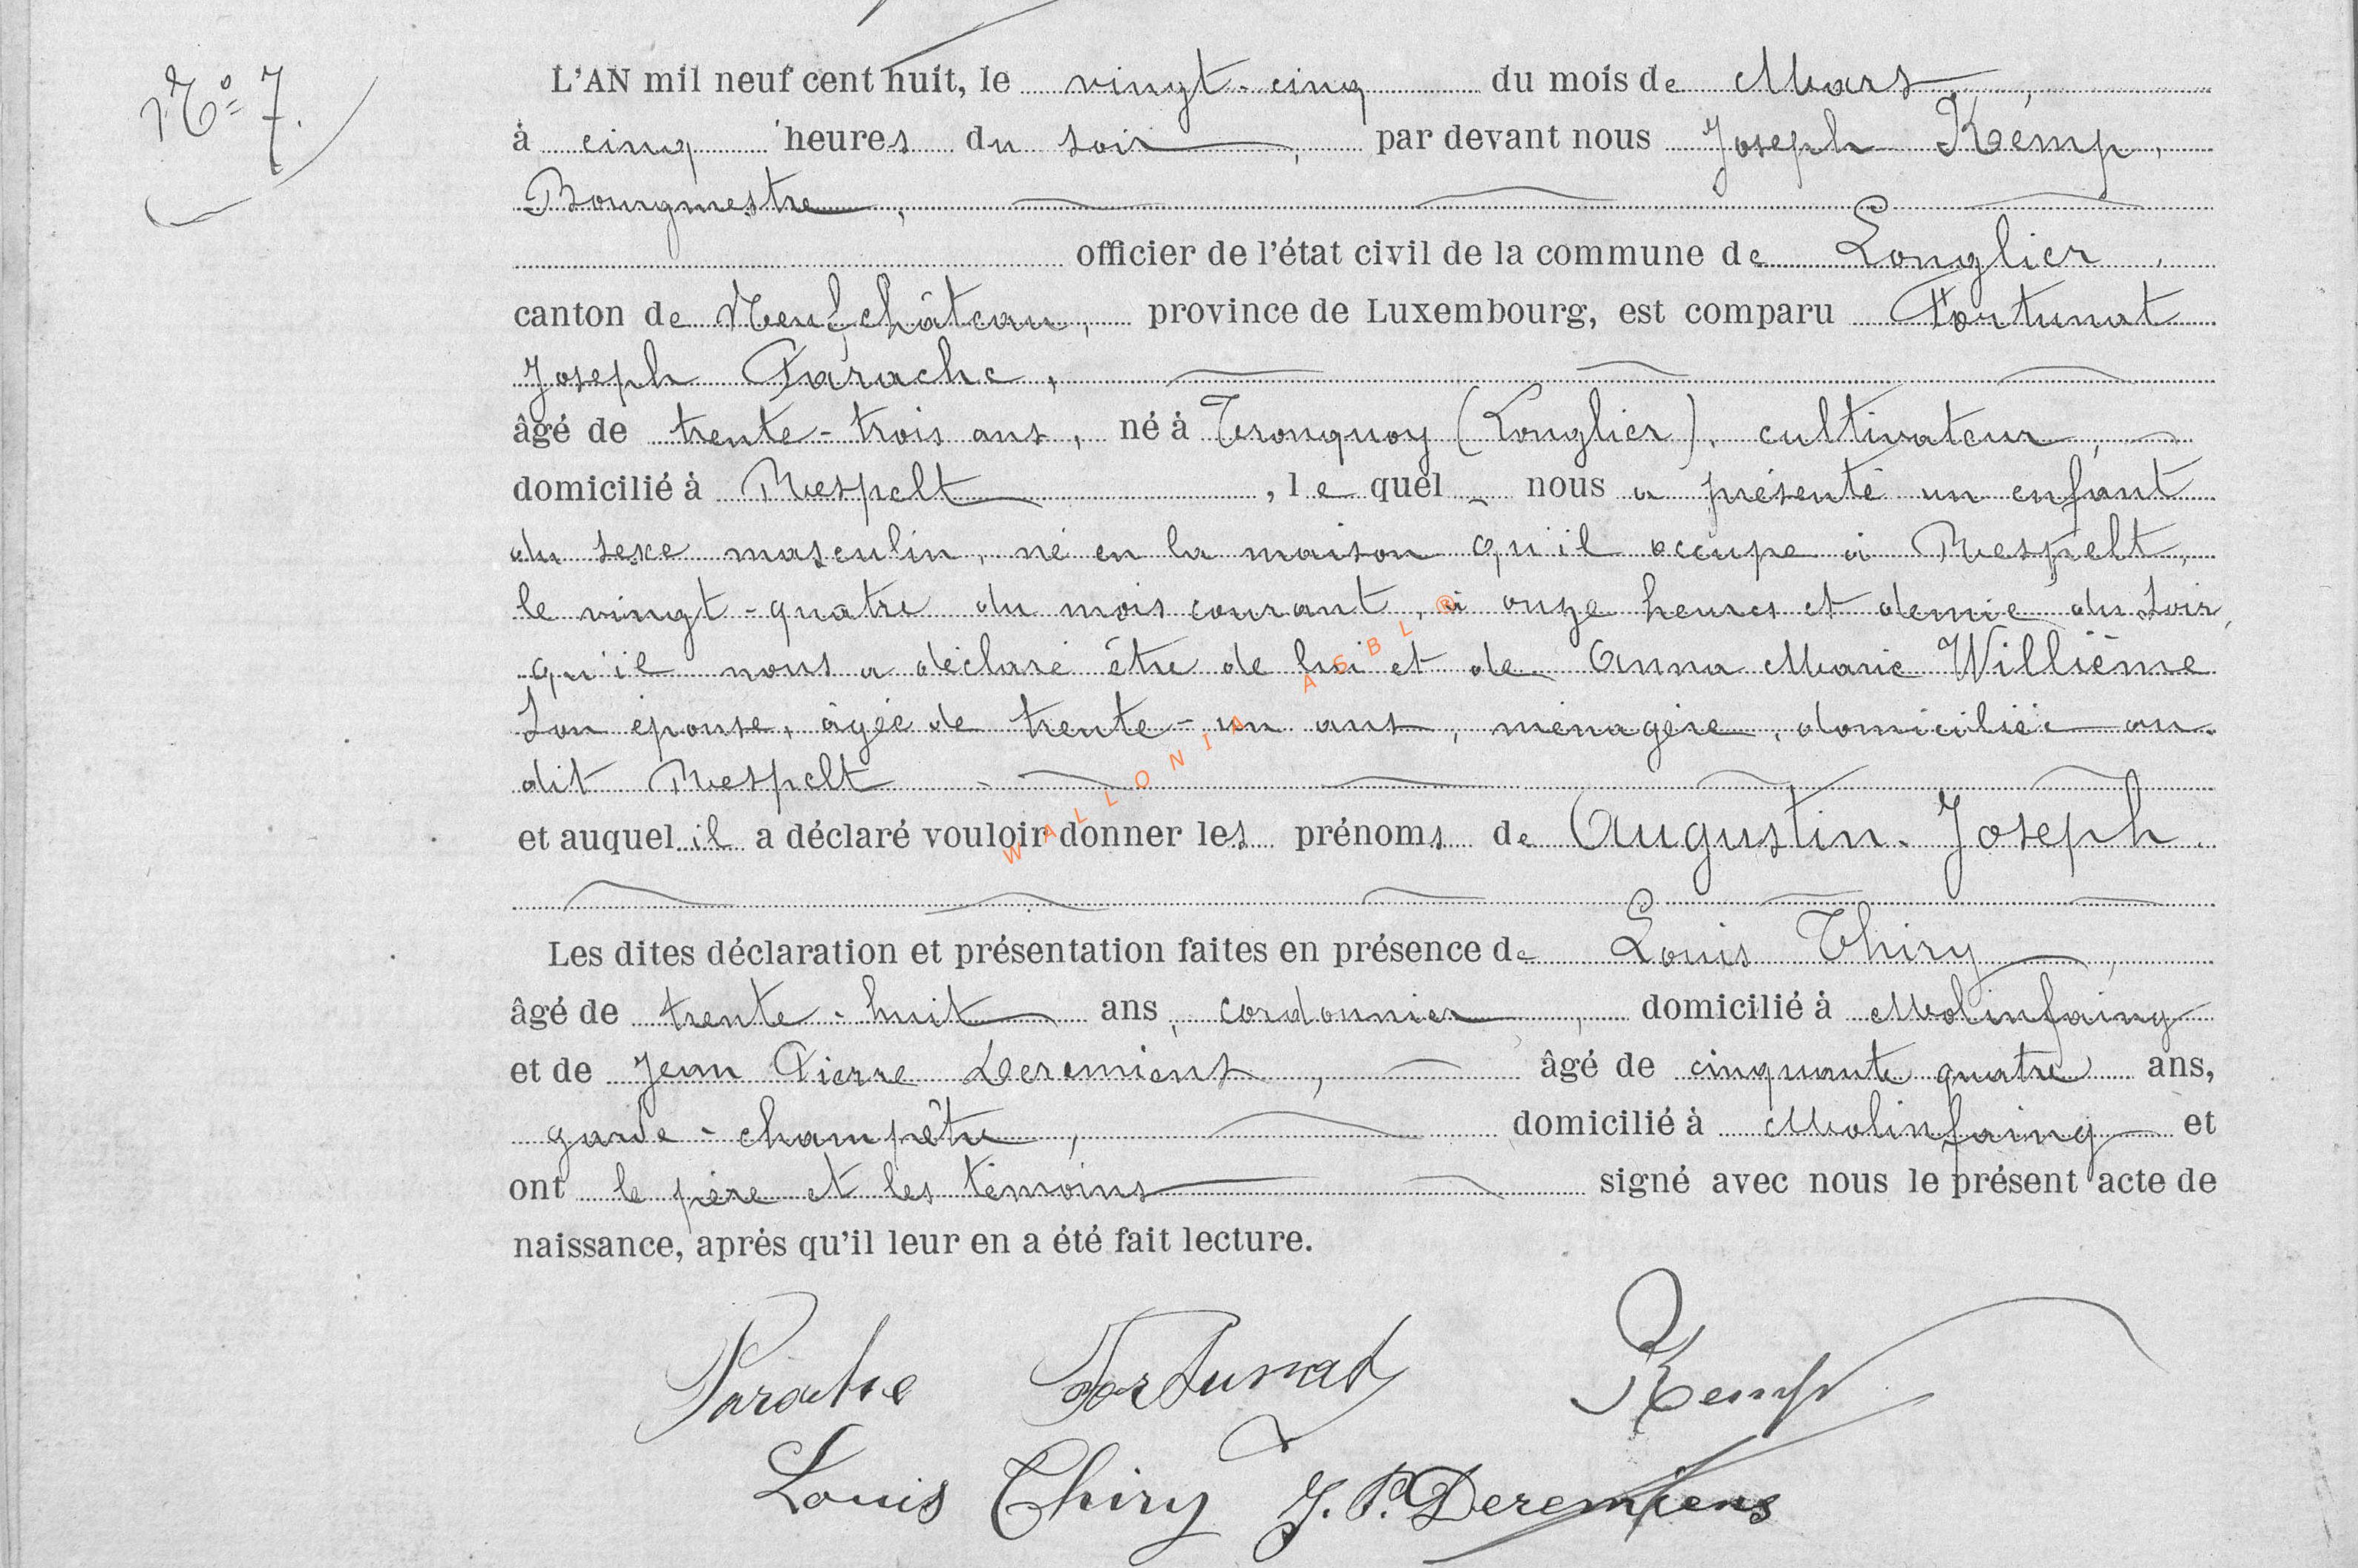 N° 7.
L'AN mil neuf cent huit, le vingt-cinq du mois de Mars,
à cinq heures du soir, par devant nous Joseph Kemp,
Bourgmestre,
officier de l'état civil de la commune de Longlier,
canton de Neufchâteau, province de Luxembourg, est comparu Fortunat
Joseph Parache,
âgé de trente-trois ans, né à Tronquoy (Longlier), cultivateur,
domicilié à Respelt, le quel nous a présenté un enfant
du sexe masculin, né en la maison qu'il occupe à Respelt,
le vingt-quatre du mois courant, à onze heures et demie du soir,
qu'il nous a déclaré être de lui et de Anna Marie Willième
son épouse, âgée de trente-un ans, ménagère, domiciliée au-
dit Respelt
et auquel il a déclaré vouloir donner les prénoms de Augustin-Joseph.
Les dites déclaration et présentation faites en présence de Louis Thiry,
âgé de trente-huit ans, cordonnier, domicilié à Molinfaing
et de Jean Pierre Deremiens, âgé de cinquante quatre ans,
garde-champêtre, domicilié à Molinfaing et
ont le père et les témoins signé avec nous le présent acte de
naissance, après qu'il leur en a été fait lecture.
Parache Fortunat Kemp
Louis Thiry J. P. Deremiens
WALLONIA ASBL ®